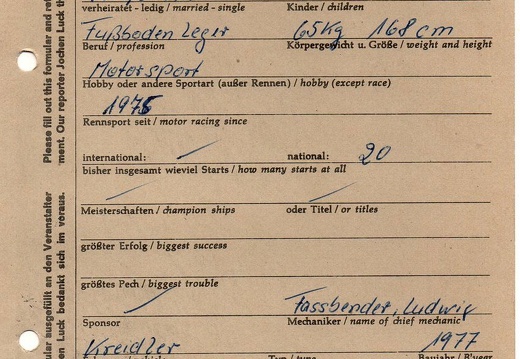 verheiratet - ledig / married - single Kinder / children
Fußboden Leger 65Kg 168 cm
Beruf / profession Körpergewicht u. Größe / weight and height
Motorsport
Hobby oder andere Sportart (außer Rennen) / hobby (except race)
1975
Rennsport seit / motor racing since
international: national: 20
bisher insgesamt wieviel Starts / how many starts at all
Meisterschaften / champion ships oder Titel / or titles
größter Erfolg / biggest success
größtes Pech / biggest trouble
Fassbender, Ludwig
Sponsor Mechaniker / name of chief mechanic
Kreidler 1977
Typ / type Baujahr / B'year
Please fill out this formular and re
ment. Our reporter Jochen Luck th
ular ausgefüllt an den Veranstalter
en Luck bedankt sich im voraus.